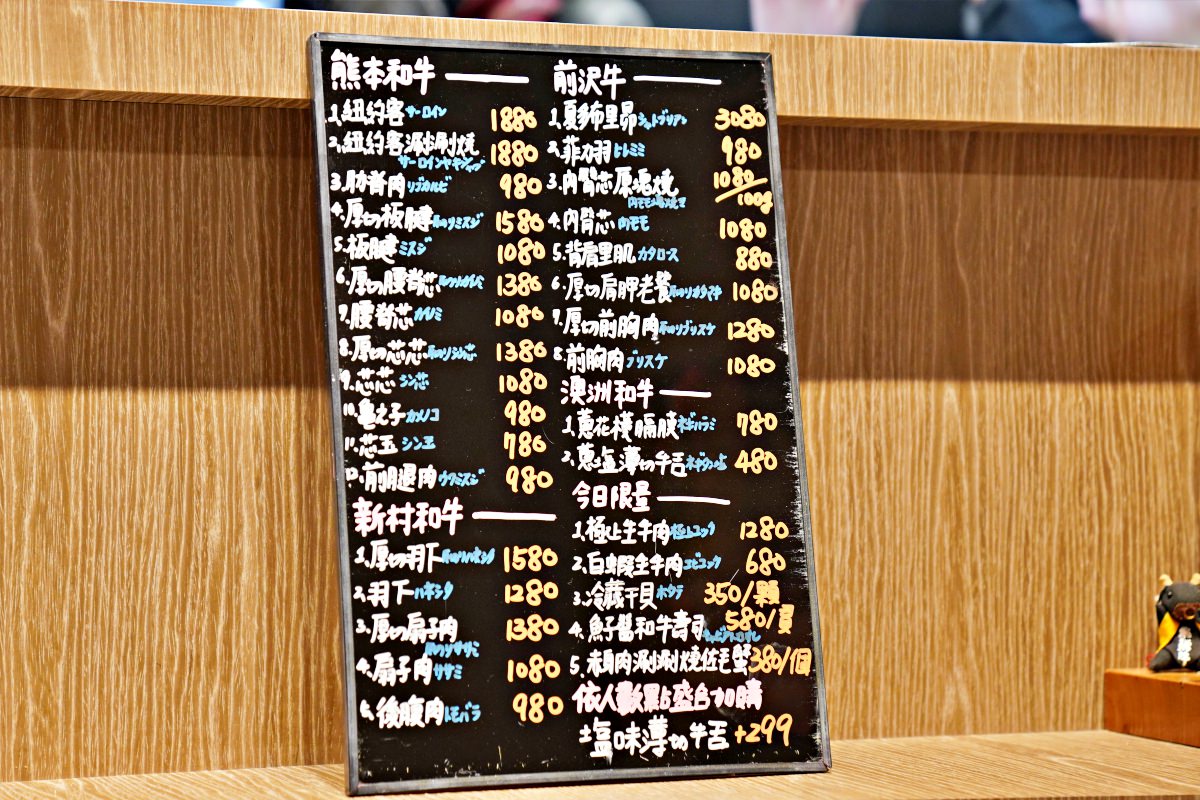 熊本和牛
1.紐約客 サーロイン 1880
2.紐約客涮涮燒 1880
サーロインヤキシャブ
3.肋脊肉 リブカルビ 980
4.厚切板腱 厚切りミスジ 1580
5.板腱 ミスジ 1080
6.厚切腰脊芯 1380
7.腰脊芯 カイノミ 1080
8.厚切芯芯 厚切りシン芯 1380
9.芯芯 シン芯 1080
10.龜之子 カメノコ 980
11.芯玉 シン玉 780
12.前腿肉 ウワミスジ 980
新村和牛
1.厚切羽下 厚切りハネシタ 1580
2.羽下 ハネシタ 1280
3.厚切扇子肉 1380
厚切りササミ
4.扇子肉 ササミ 1080
5.後腹肉 トモバラ 980
前沢牛
1.夏多布里昂 シャトブリアン 3080
2.菲力羽 ヒレミミ 980
3.內臀芯原塊燒 1080/100g
4.內臀芯 内モモ 1080
5.背肩里肌 カタロース 880
6.厚切肩胛老饕 1080
7.厚切前胸肉 厚切りブリスケ 1280
8.前胸肉 ブリスケ 1080
澳洲和牛
1.蔥花橫隔膜 ネギハラミ 780
2.蔥塩薄切牛舌 ネギタン塩 480
今日限量
1.極上生牛肉 極上ユッケ 1280
2.白蝦生牛肉 エビユッケ 680
3.冷藏干貝 ホタテ 350/顆
4.魚子醬和牛壽司 580/貫
5.赤身肉涮涮燒佐毛蟹 380/個
依人數點盛合加購
塩味薄切牛舌 +299